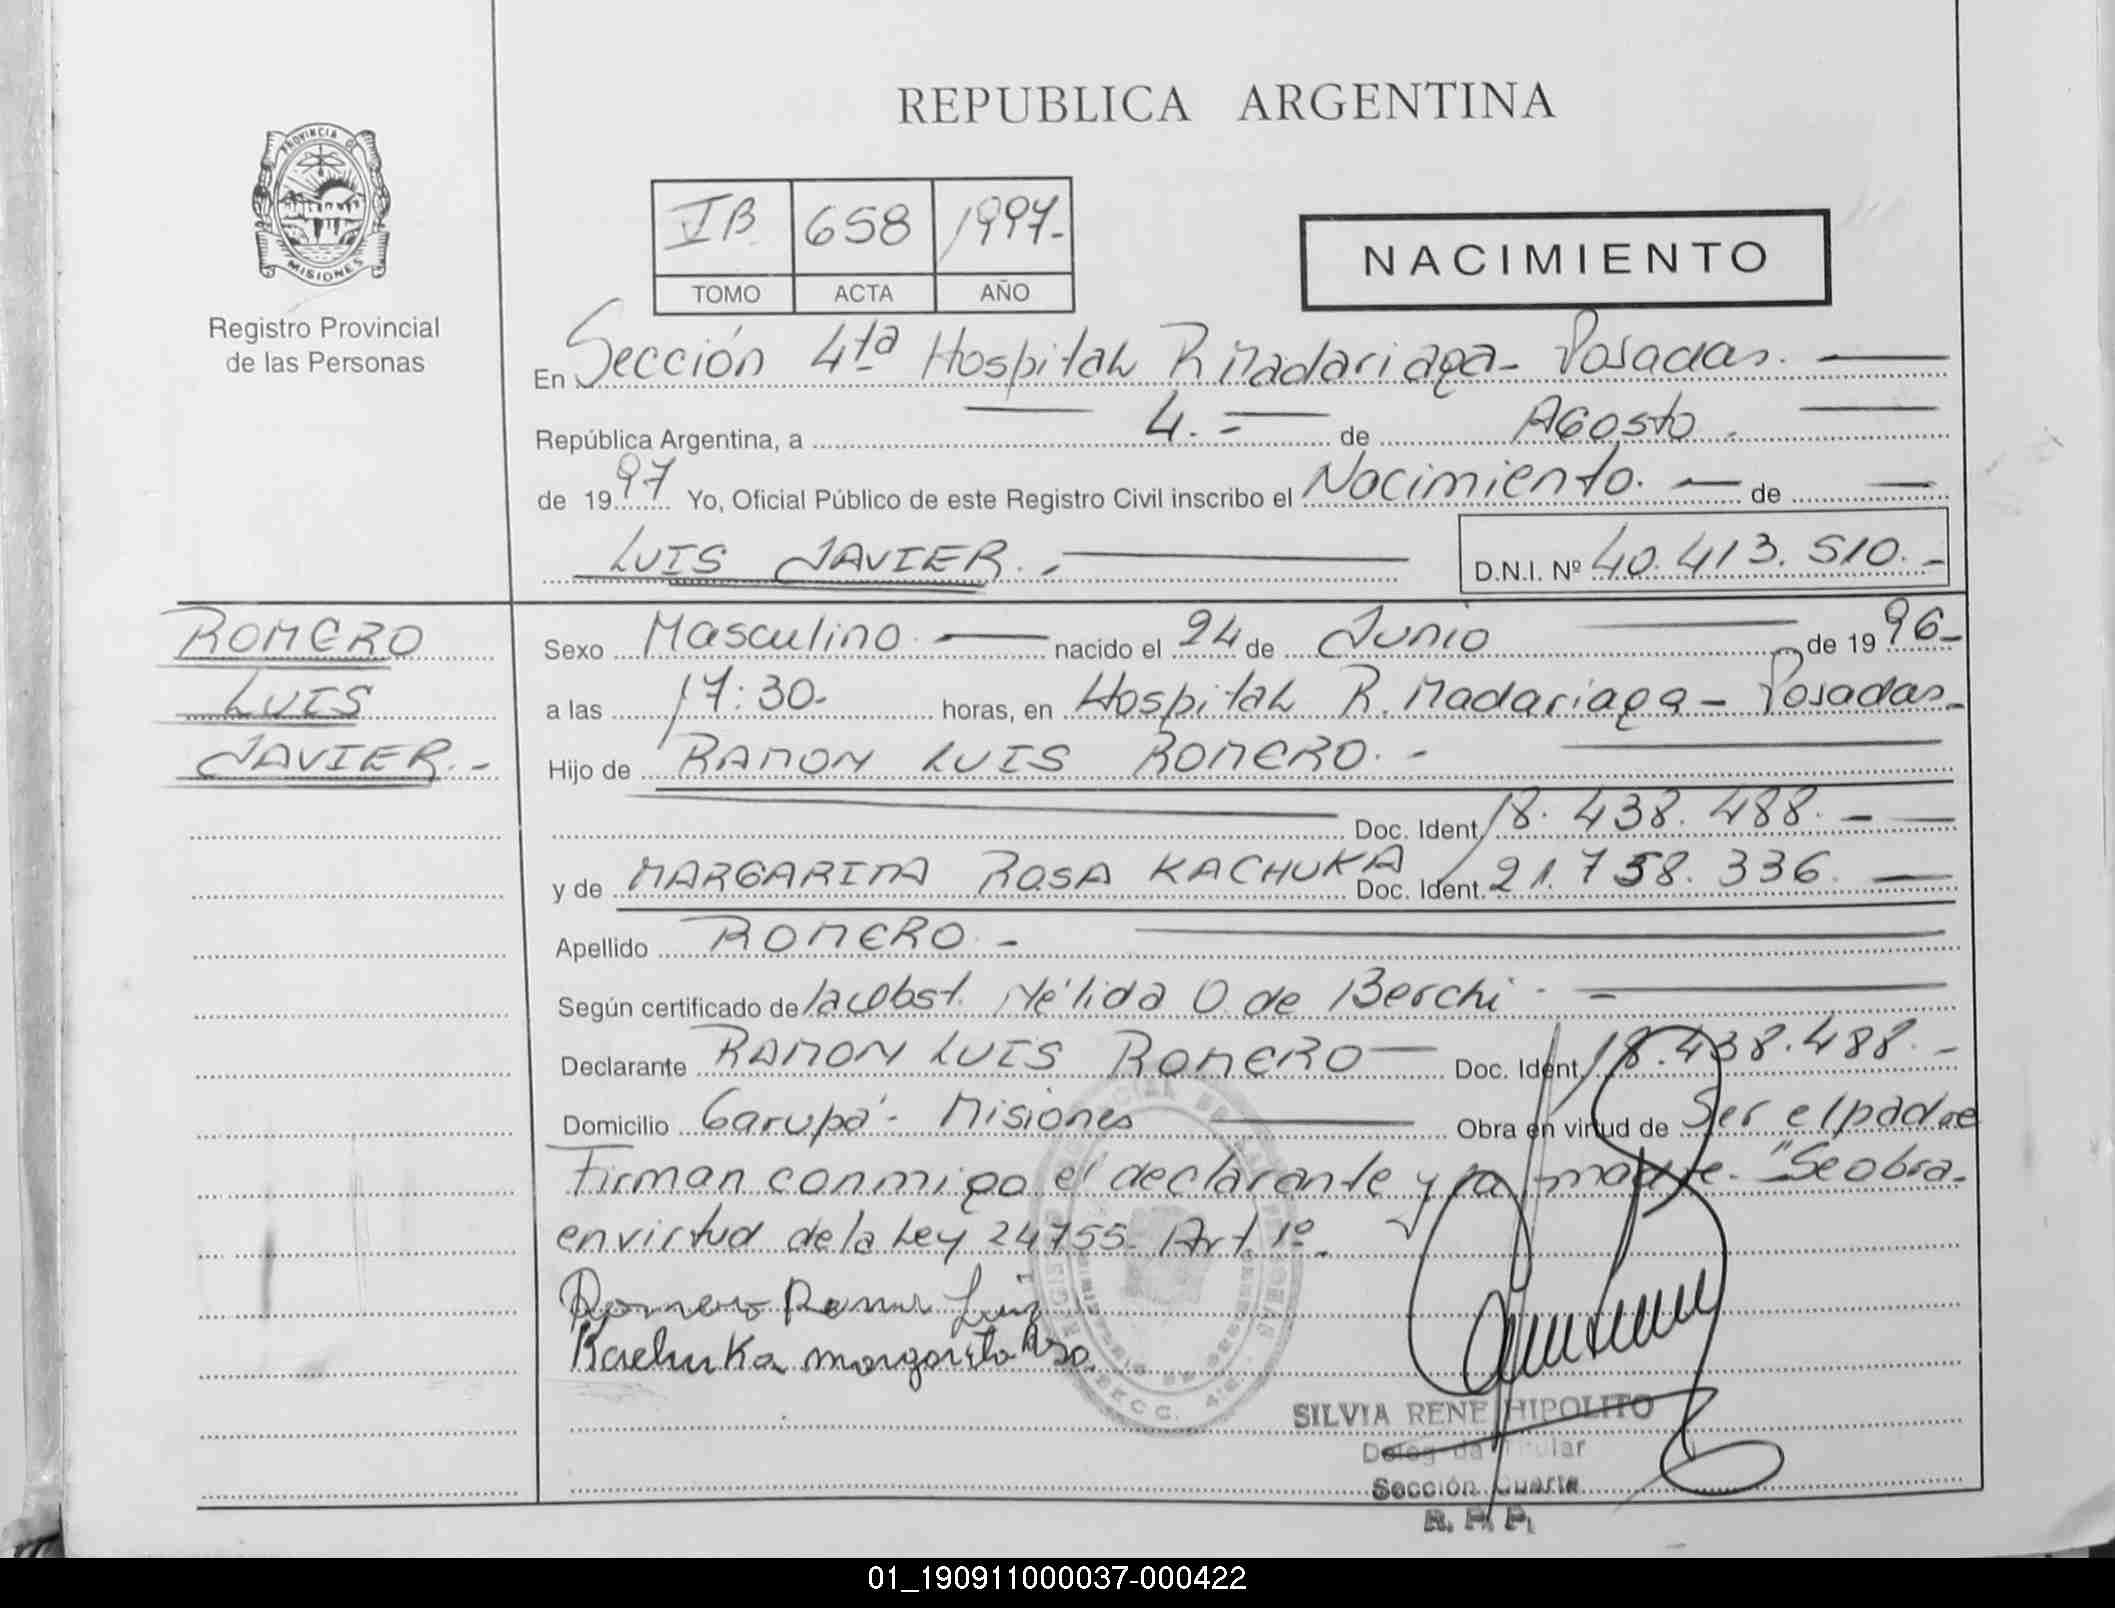 REPUBLICA ARGENTINA
PROVINCIA DE MISIONES
Registro Provincial
de las Personas
IB 658 1997.-
TOMO ACTA AÑO
NACIMIENTO
En Sección 4ta Hospital R Madariaga- Posadas.
República Argentina, a 4.- de Agosto.
de 1997 Yo, Oficial Público de este Registro Civil inscribo el Nacimiento. de
LUIS JAVIER.- D.N.I. Nº 40.413.510.-
ROMERO
LUIS
JAVIER.-
Sexo Masculino. nacido el 24 de Junio de 1996-
a las 17:30. horas, en Hospital R. Madariaga - Posadas.
Hijo de RAMON LUIS ROMERO.-
Doc. Ident. 18.438.488.-
y de MARGARITA ROSA KACHUKA Doc. Ident. 21.738.336.
Apellido ROMERO.-
Según certificado de la obst. Nélida O. de Berchi.-
Declarante RAMON LUIS ROMERO Doc. Ident. 18.438.488.-
Domicilio Garupá - Misiones Obra en virtud de Ser el padre
Firman conmigo el declarante y la madre. "Se obra.
en virtud de la Ley 24755- Art. 1º.
Romero Ramon Luiz
Kachuka margarita Rosa.
SILVIA RENE HIPOLITO
Titular
Sección Cuarta
R. P. P.
01_190911000037-000422